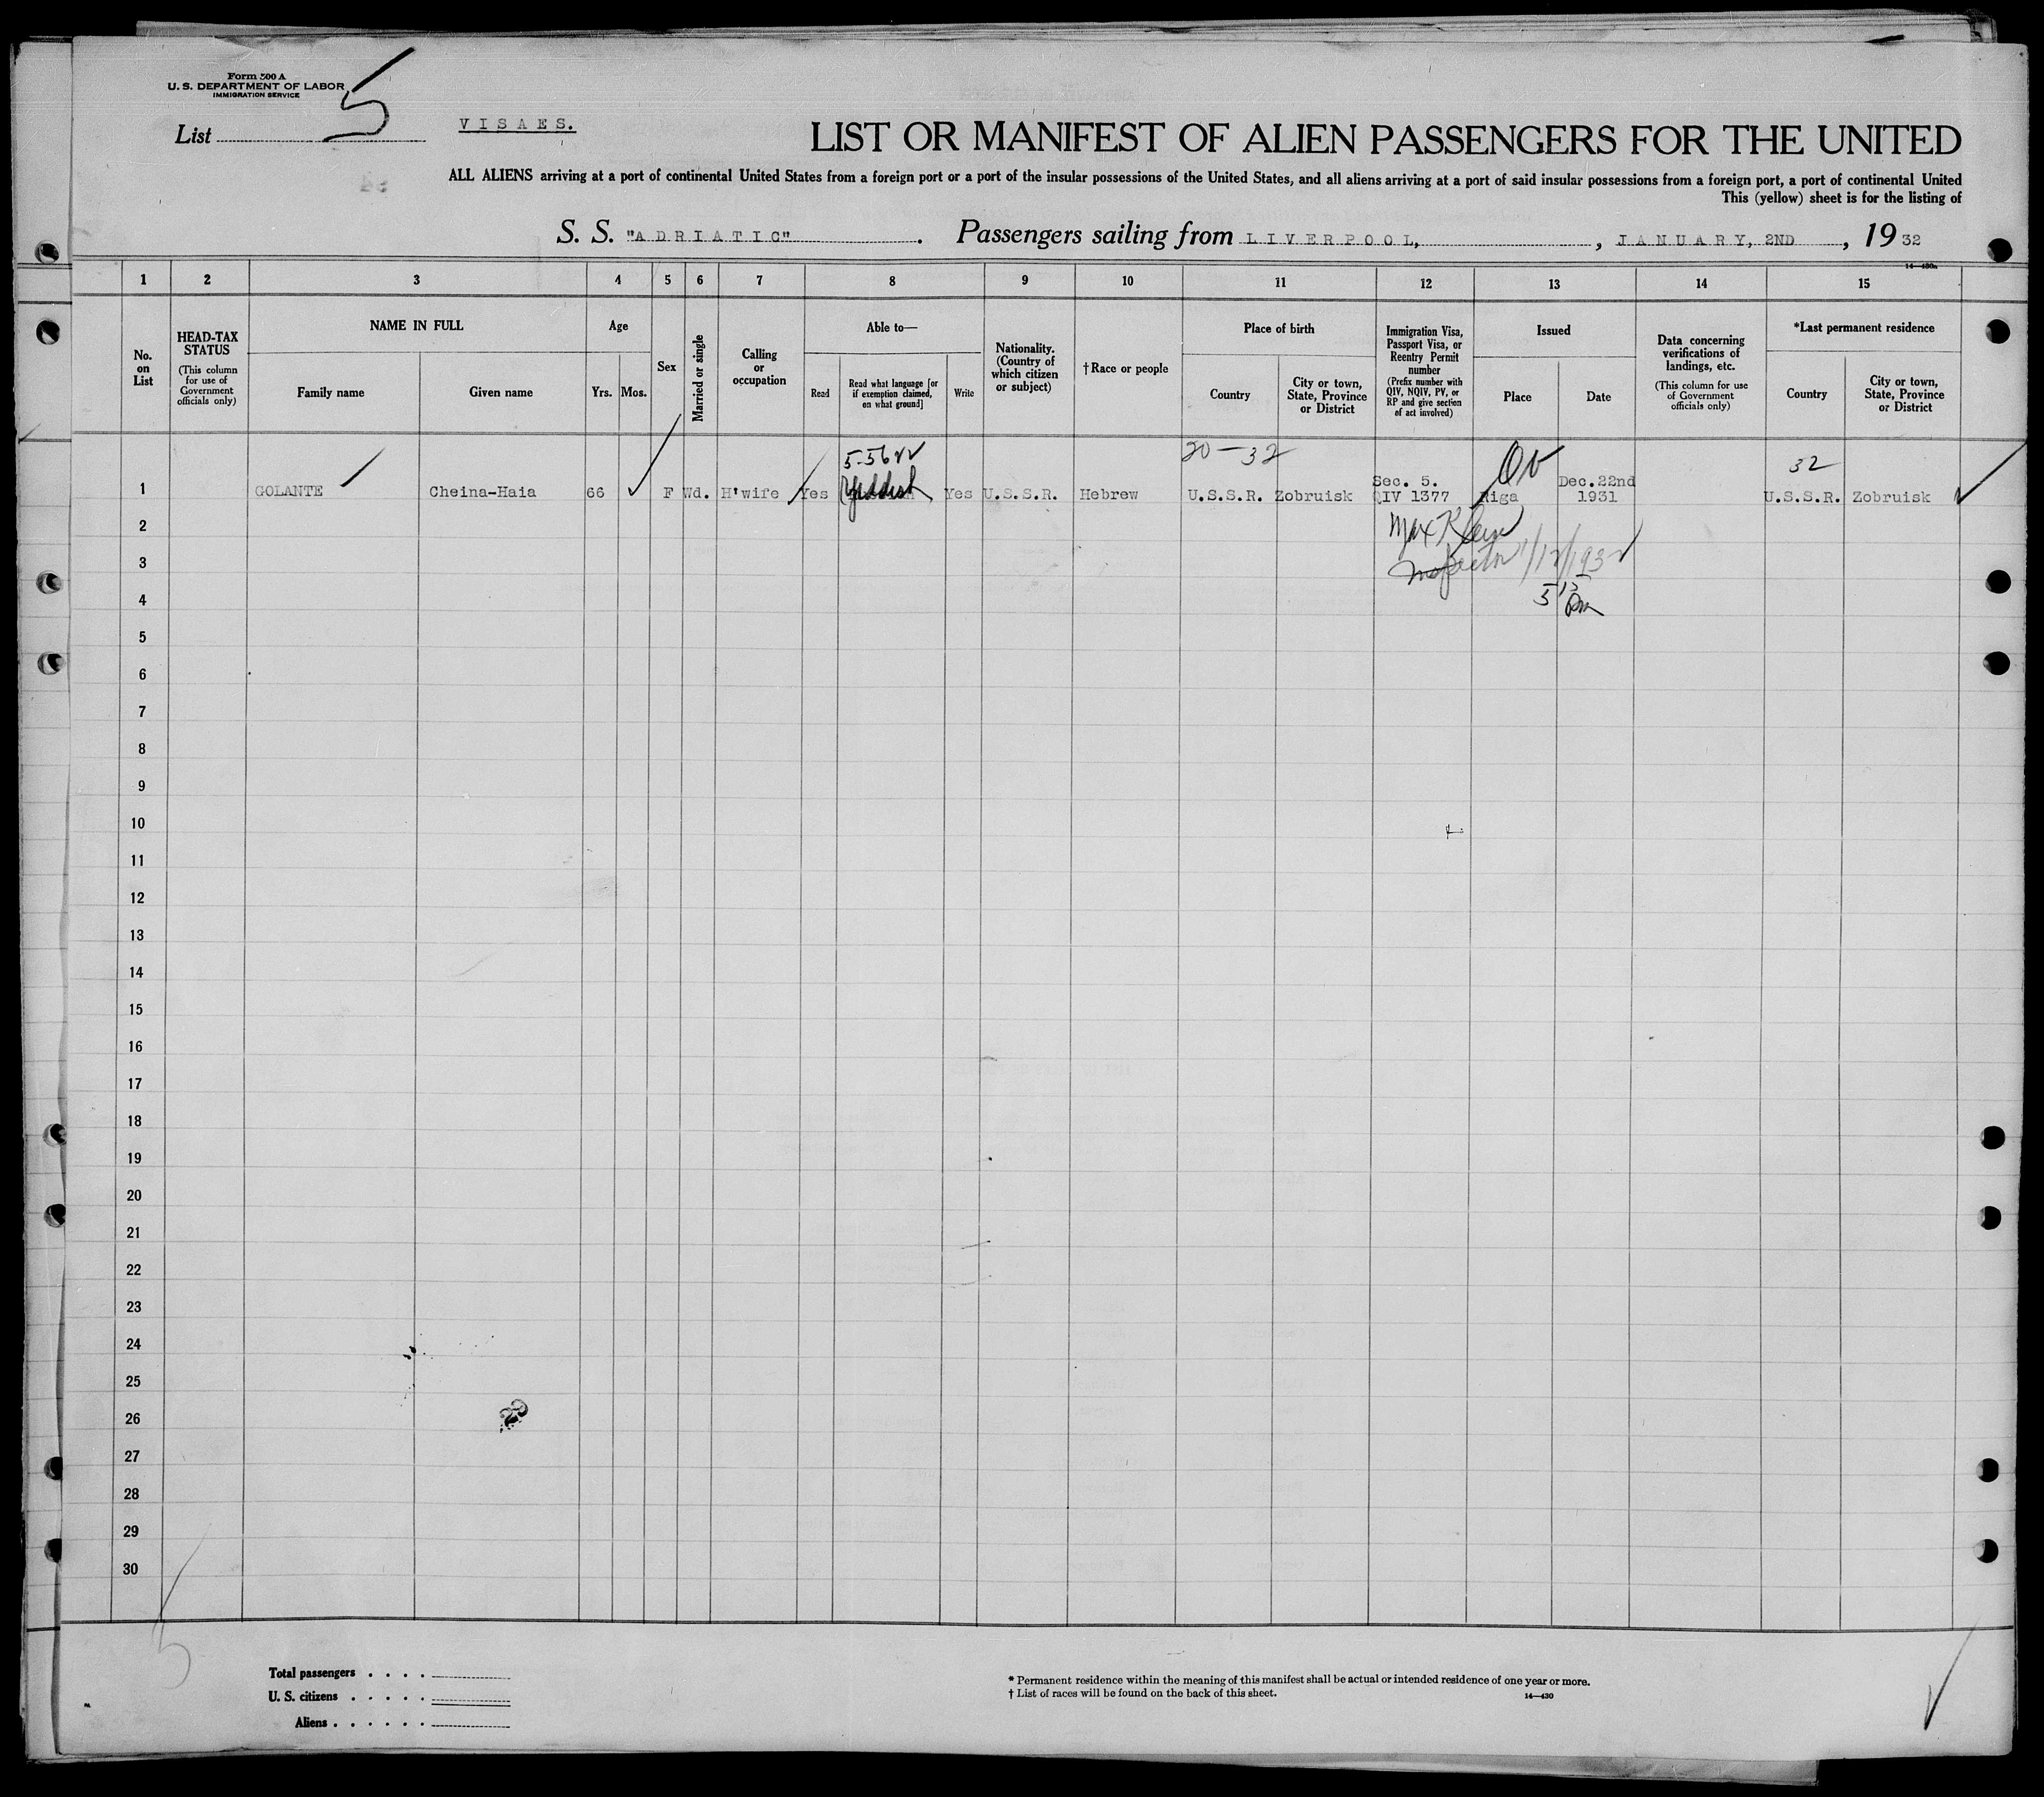 Form 500 A
U. S. DEPARTMENT OF LABOR
IMMIGRATION SERVICE
List 5
VISAES.
LIST OR MANIFEST OF ALIEN PASSENGERS FOR THE UNITED
ALL ALIENS arriving at a port of continental United States from a foreign port or a port of the insular possessions of the United States, and all aliens arriving at a port of said insular possessions from a foreign port, a port of continental United
This (yellow) sheet is for the listing of
S. S. "ADRIATIC". Passengers sailing from LIVERPOOL, , JANUARY, 2ND , 19 32
14—430a
1 2 3 4 5 6 7 8 9 10 11 12 13 14 15
No. on List
HEAD-TAX STATUS
(This column for use of Government officials only)
NAME IN FULL
Family name
Given name
Age
Yrs. Mos.
Sex
Married or single
Calling or occupation
Able to—
Read
Read what language [or if exemption claimed, on what ground]
Write
Nationality. (Country of which citizen or subject)
†Race or people
Place of birth
Country
City or town, State, Province or District
Immigration Visa, Passport Visa, or Reentry Permit number
(Prefix number with QIV, NQIV, PV, or RP and give section of act involved)
Issued
Place
Date
Data concerning verifications of landings, etc.
(This column for use of Government officials only)
*Last permanent residence
Country
City or town, State, Province or District
20-32
32
Sec. 5. Dec.22nd
1 GOLANTE Cheina-Haia 66 F Wd. H'wife Yes Yiddish Yes U.S.S.R. Hebrew U.S.S.R. Zobruisk QIV 1377 Riga 1931 U.S.S.R. Zobruisk
2
Max Klein
3
Inspector 1/12/1932
4
5 15 Pm
5
6
7
8
9
10
11
12
13
14
15
16
17
18
19
20
21
22
23
24
25
26
27
28
29
30
5
Total passengers . . . .
U. S. citizens . . . . .
Aliens . . . . . .
* Permanent residence within the meaning of this manifest shall be actual or intended residence of one year or more.
† List of races will be found on the back of this sheet.
14—430